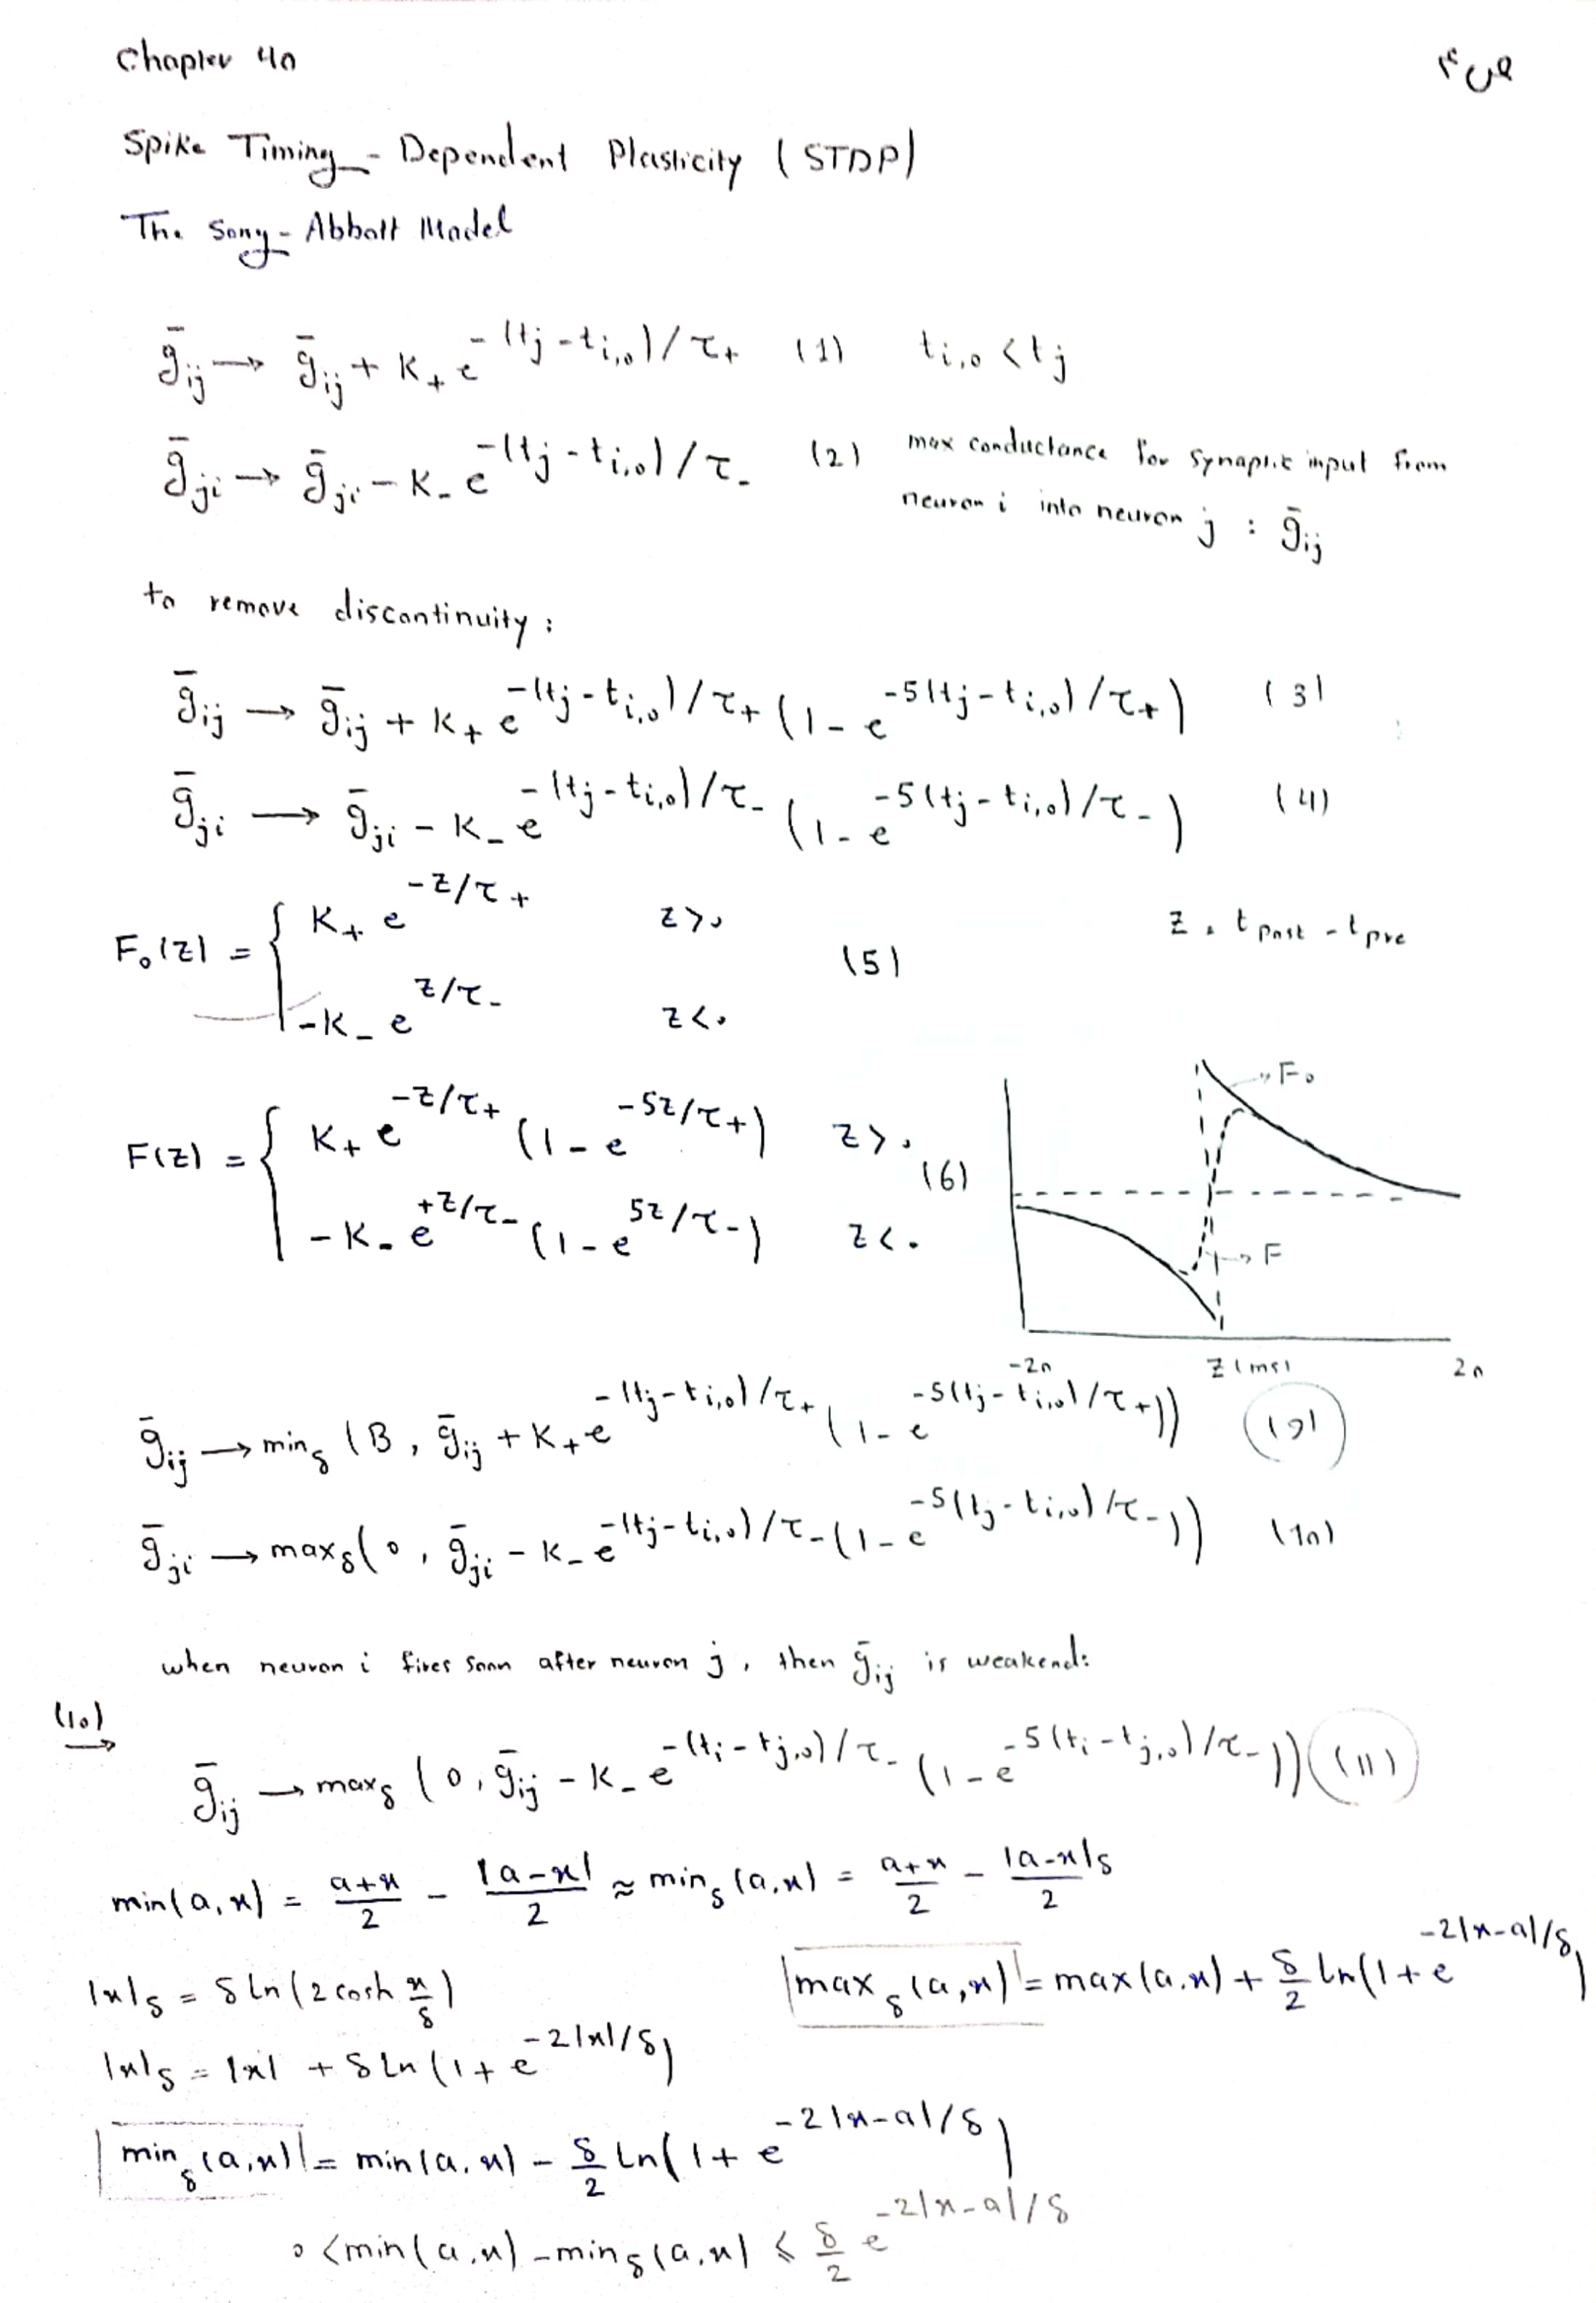 Chapter 40
ص ۴
Spike Timing-Dependent Plasticity (STDP)
The Song-Abbott Model
ḡ_ij → ḡ_ij + K₊ e^{-(t_j - t_{i,0})/τ₊} (1) t_{i,0} < t_j
ḡ_ji → ḡ_ji - K₋ e^{-(t_j - t_{i,0})/τ₋} (2) max conductance for synaptic input from
neuron i into neuron j : ḡ_ij
to remove discontinuity :
ḡ_ij → ḡ_ij + K₊ e^{-(t_j - t_{i,0})/τ₊} (1 - e^{-5(t_j - t_{i,0})/τ₊}) (3)
ḡ_ji → ḡ_ji - K₋ e^{-(t_j - t_{i,0})/τ₋} (1 - e^{-5(t_j - t_{i,0})/τ₋}) (4)
F₀(z) = { K₊ e^{-z/τ₊} z>0
-K₋ e^{z/τ₋} z<0 (5)
z = t_post - t_pre
F(z) = { K₊ e^{-z/τ₊} (1 - e^{-5z/τ₊}) z>0
-K₋ e^{+z/τ₋} (1 - e^{5z/τ₋}) z<0 (6)
F₀
F
-20 z (ms) 20
ḡ_ij → min_δ (B, ḡ_ij + K₊ e^{-(t_j - t_{i,0})/τ₊} (1 - e^{-5(t_j - t_{i,0})/τ₊})) (9)
ḡ_ji → max_δ (0, ḡ_ji - K₋ e^{-(t_j - t_{i,0})/τ₋} (1 - e^{-5(t_j - t_{i,0})/τ₋})) (10)
when neuron i fires soon after neuron j, then ḡ_ij is weakend:
(10) →
ḡ_ij → max_δ (0, ḡ_ij - K₋ e^{-(t_i - t_{j,0})/τ₋} (1 - e^{-5(t_i - t_{j,0})/τ₋})) (11)
min(a,x) = (a+x)/2 - |a-x|/2 ≈ min_δ(a,x) = (a+x)/2 - |a-x|_δ/2
|x|_δ = δ ln(2 cosh x/δ)
max_δ(a,x) = max(a,x) + δ/2 ln(1 + e^{-2|x-a|/δ})
|x|_δ = |x| + δ ln(1 + e^{-2|x|/δ})
min_δ(a,x) = min(a,x) - δ/2 ln(1 + e^{-2|x-a|/δ})
0 < min(a,x) - min_δ(a,x) ≤ δ/2 e^{-2|x-a|/δ}